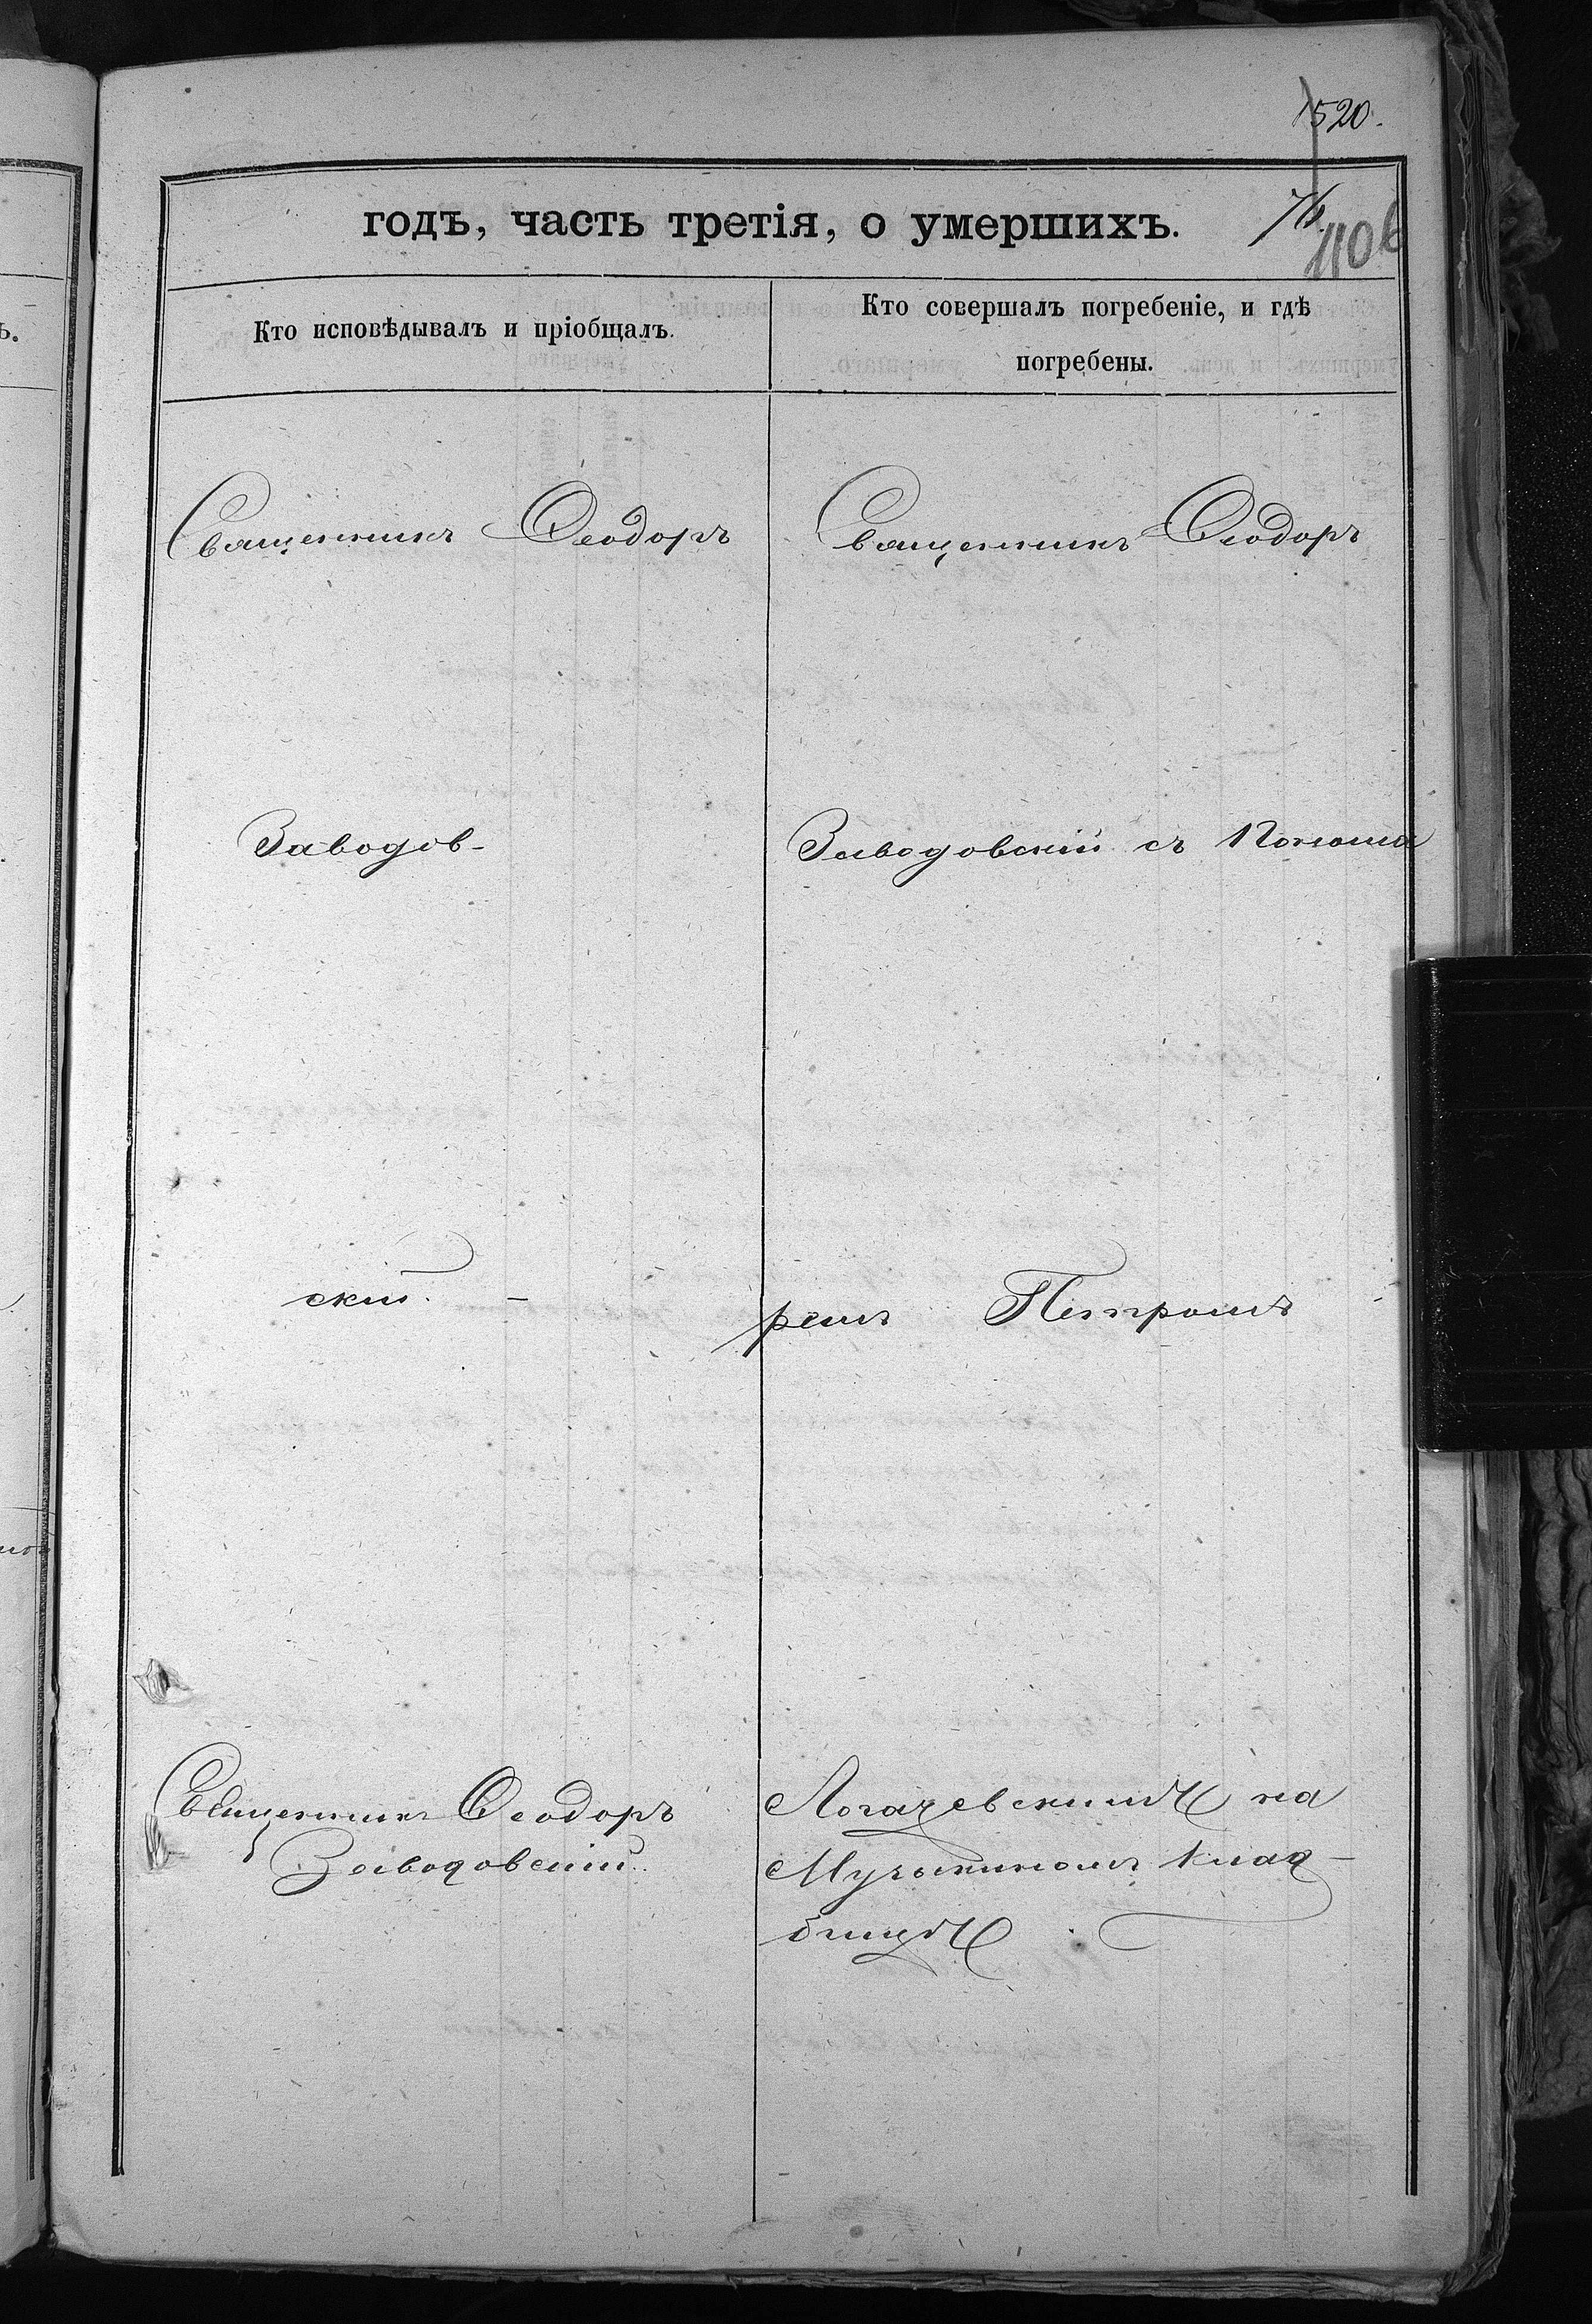 1520.
годъ, часть третія, о умершихъ.
1106
Кто исповѣдывалъ и пріобщалъ.
Кто совершалъ погребеніе, и гдѣ
погребены.
Священникъ Ѳеодоръ
Заводов-
скій. -
Священникъ Ѳеодоръ
Заводовскій.
Священникъ Ѳеодоръ
Заводовскій съ Понома
ремъ Петромъ
Логачевскимъ на
клад-
бищѣ.